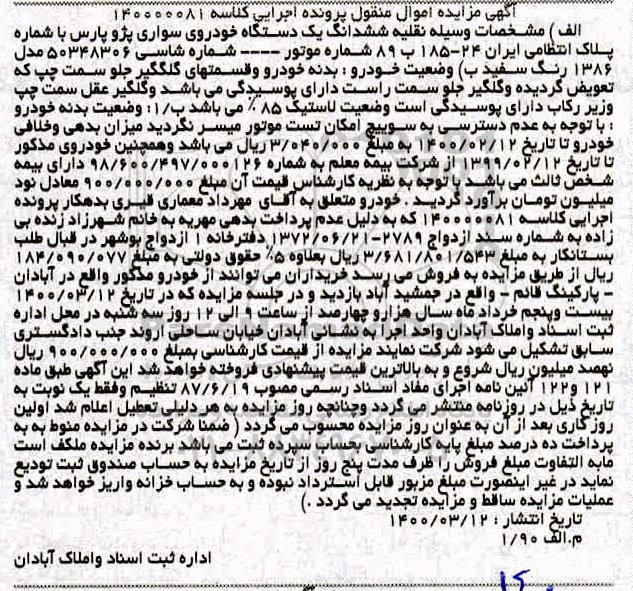 آگهی مزایده اموال منقول پرونده اجرایی کلاسه ۱۴۰۰۰۰۰۸۱
الف ) مشخصات وسیله نقلیه ششدانگ یک دستگاه خودروی سواری پژو پارس با شماره
پلاک انتظامی ایران ۲۴-۱۸۵ ب ۸۹ شماره موتور ---- شماره شاسی ۵۰۳۴۸۳۰۶ مدل
۱۳۸۶ رنگ سفید ب) وضعیت خودرو : بدنه خودرو وقسمتهای گلگیر جلو سمت چپ که
تعویض گردیده وگلگیر جلو سمت راست دارای پوسیدگی می باشد وگلگیر عقل سمت چپ
وزیر رکاب دارای پوسیدگی است وضعیت لاستیک ۸۵ ٪ می باشد ب/۱: وضعیت بدنه خودرو
: با توجه به عدم دسترسی به سوییچ امکان تست موتور میسر نگردید میزان بدهی وخلافی
خودرو تا تاریخ ۱۴۰۰/۰۲/۱۲ به مبلغ ۳/۰۴۰/۰۰۰ ریال می باشد وهمچنین خودروی مذکور
تا تاریخ ۱۳۹۹/۰۲/۱۲ از شرکت بیمه معلم به شماره ۹۸/۶۰۰/۴۹۷/۰۰۰۱۲۶ دارای بیمه
شخص ثالث می باشد با توجه به نظریه کارشناس قیمت آن مبلغ ۹۰۰/۰۰۰/۰۰۰ معادل نود
میلیون تومان برآورد گردید . خودرو متعلق به آقای مهرداد معماری قیری بدهکار پرونده
اجرایی کلاسه ۱۴۰۰۰۰۰۸۱ که به دلیل عدم پرداخت بدهی مهریه به خانم شهرزاد زنده بی
زاده به شماره سند ازدواج ۲۷۸۹-۱۳۷۲/۰۶/۲۱ دفترخانه ۱ ازدواج بوشهر در قبال طلب
بستانکار به مبلغ ۳/۶۸۱/۸۰۱/۵۴۳ ریال بعلاوه ۵٪ حقوق دولتی به مبلغ ۱۸۴/۰۹۰/۰۷۷
ریال از طریق مزایده به فروش می رسد خریداران می توانند از خودرو مذکور واقع در آبادان
- پارکینگ قائم - واقع در جمشید آباد بازدید و در جلسه مزایده که در تاریخ ۱۴۰۰/۰۳/۱۲
بیست وپنجم خرداد ماه سال هزارو چهارصد از ساعت ۹ الی ۱۲ روز سه شنبه در محل اداره
ثبت اسناد واملاک آبادان واحد اجرا به نشانی آبادان خیابان ساحلی اروند جنب دادگستری
سابق تشکیل می شود شرکت نمایند مزایده از قیمت کارشناسی بمبلغ ۹۰۰/۰۰۰/۰۰۰ ریال
نهصد میلیون ریال شروع و به بالاترین قیمت پیشنهادی فروخته خواهد شد این آگهی طبق ماده
۱۲۱ و۱۲۲ آئین نامه اجرای مفاد اسناد رسمی مصوب ۸۷/۶/۱۹ تنظیم وفقط یک نوبت به
تاریخ ذیل در روزنامه منتشر می گردد وچنانچه روز مزایده به هر دلیلی تعطیل اعلام شد اولین
روز کاری بعد از آن به عنوان روز مزایده محسوب می گردد ( ضمنا شرکت در مزایده منوط به به
پرداخت ده درصد مبلغ پایه کارشناسی بحساب سپرده ثبت می باشد برنده مزایده ملکف است
مابه التفاوت مبلغ فروش را ظرف مدت پنج روز از تاریخ مزایده به حساب صندوق ثبت تودیع
نماید در غیر اینصورت مبلغ مزبور قابل استرداد نبوده و به حساب خزانه واریز خواهد شد و
عملیات مزایده ساقط و مزایده تجدید می گردد .)
تاریخ انتشار : ۱۴۰۰/۰۳/۱۲
م.الف ۱/۹۰
اداره ثبت اسناد واملاک آبادان